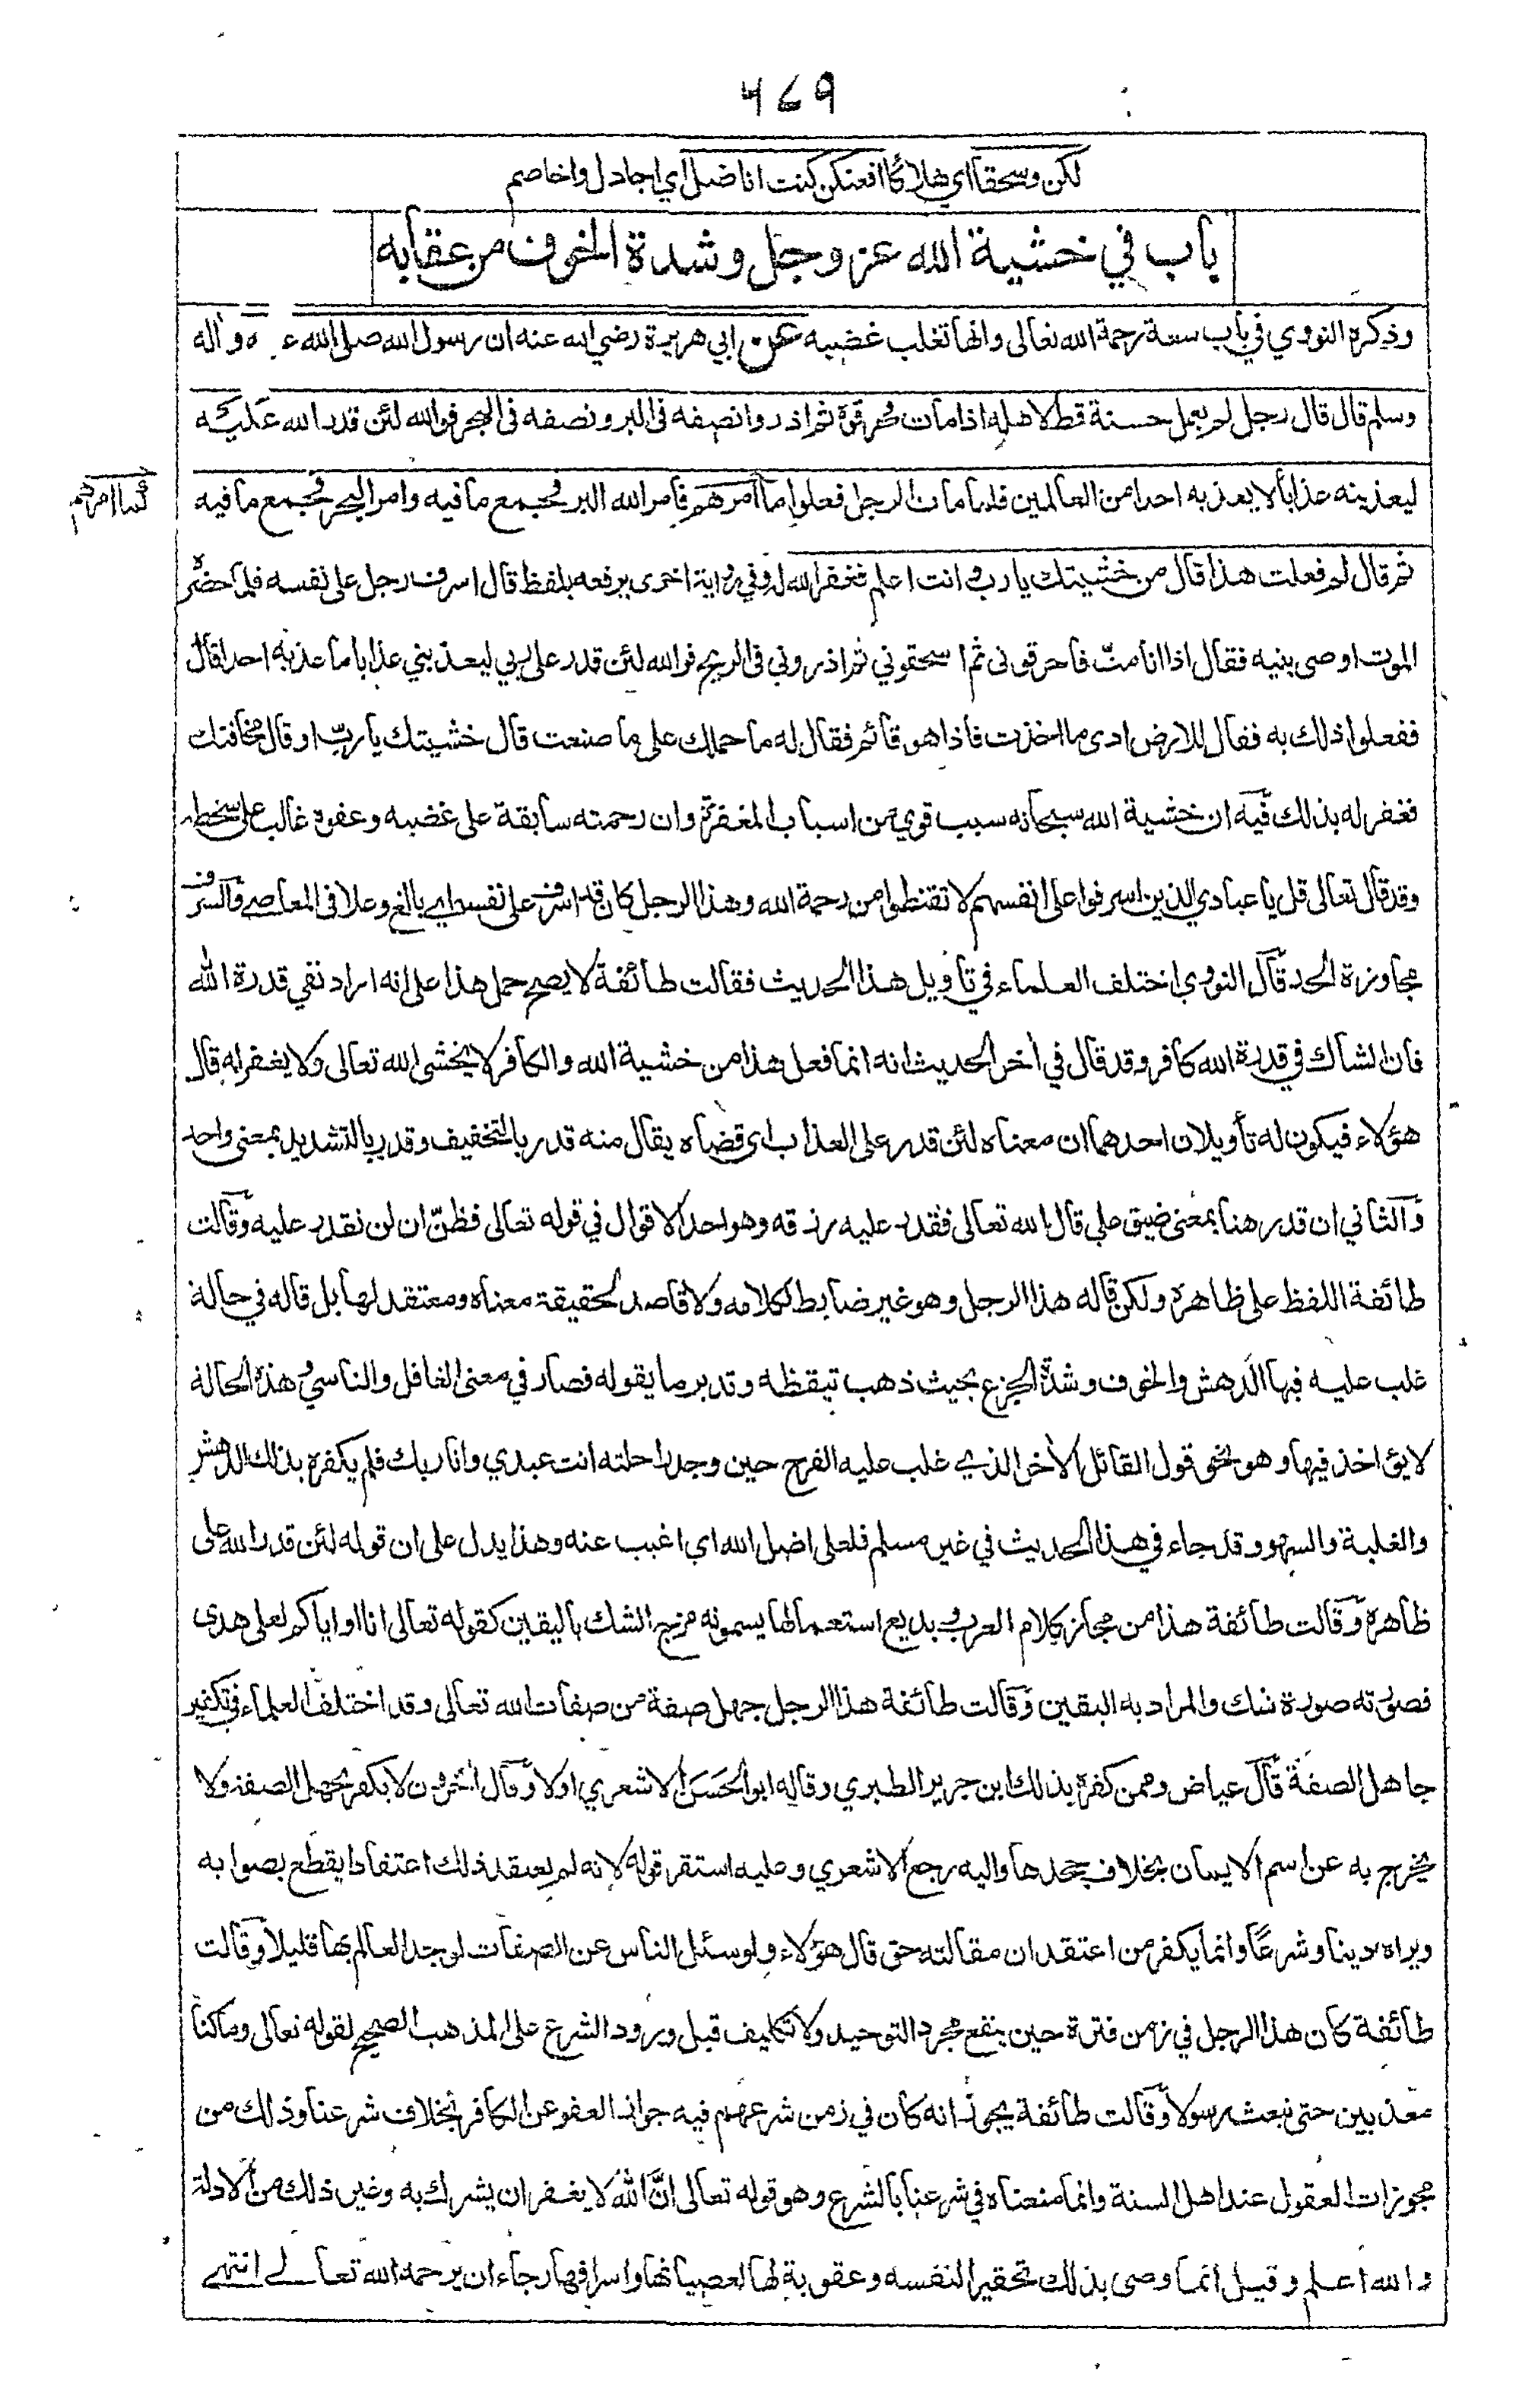 ٤٦٩
لكن وسحقا اي هلاكا فعنكن كنت اناضل اي اجادل واخاصم
باب في خشية الله عز وجل وشدة الخوف من عقابه
وذكره النووي في باب سعة رحمة الله تعالى وانها تغلب غضبه عن ابي هريرة رضي الله عنه ان رسول الله صلى الله واله
وسلم قال قال رجل لم يعمل حسنة قط لاهله اذا مات فحرقوه ثم اذروا نصفه في البر ونصفه في البحر فوالله لئن قدر الله عليه
ليعذبنه عذابا لا يعذبه احدا من العالمين فلما مات الرجل فعلوا ما امرهم فامر الله البر فجمع ما فيه وامر البحر فجمع ما فيه
ثم قال لم فعلت هذا قال من خشيتك يا رب وانت اعلم فغفر الله له وفي رواية اخرى يرفعه بلفظ قال اسرف رجل على نفسه فلما حضره
الموت اوصى بنيه فقال اذا انا متّ فاحرقوني ثم اسحقوني ثم اذروني في الريح فوالله لئن قدر على ربي ليعذبني عذابا ما عذبه احدا قال
ففعلوا ذلك به فقال للارض ادى ما اخذت فاذا هو قائم فقال له ما حملك على ما صنعت قال خشيتك يا ربّ او قال مخافتك
فغفر له بذلك فيه ان خشية الله سبحانه سبب قوي من اسباب المغفرة وان رحمته سابقة على غضبه وعفوه غالب على سخطه
وقد قال تعالى قل يا عبادي الذين اسرفوا على انفسهم لا تقنطوا من رحمة الله وهذا الرجل كان قد اسرف على نفسه اي بالغ وعلا في المعاصي والسرف
مجاوزة الحد قال النووي اختلف العلماء في تاويل هذا الحديث فقالت طائفة لا يصح حمل هذا على انه اراد نفي قدرة الله
فان الشاك في قدرة الله كافر وقد قال في اخر الحديث انه انما فعل هذا من خشية الله والكافر لا يخشى الله تعالى ولا يغفر له قال
هؤلاء فيكون له تأويلان احدهما ان معناه لئن قدر على العذاب اى قضاه يقال منه قدر بالتخفيف وقدر بالتشديد بمعنى واحد
والثاني ان قدر هنا بمعنى ضيق علي قال الله تعالى فقدر عليه رزقه وهو احد الاقوال في قوله تعالى فظنّ ان لن نقدر عليه وقالت
طائفة اللفظ على ظاهره ولكن قاله هذا الرجل وهو غير ضابط لكلامه ولا قاصد لحقيقة معناه ومعتقد لها بل قاله في حالة
غلب عليه فيها الدهش والخوف وشدة الجزع بحيث ذهب تيقظه وتدبر ما يقوله فصار في معنى الغافل والناسي وهذه الحالة
لا يؤاخذ فيها وهو نحو قول القائل الاخر الذي غلب عليه الفرح حين وجد راحلته انت عبدي وانا ربك فلم يكفره بذلك الدهش
والغلبة والسهو وقد جاء في هذا الحديث في غير مسلم فلعلى اضل الله اي اغيب عنه وهذا يدل على ان قوله لئن قدر الله على
ظاهره وقالت طائفة هذا من مجاز كلام العرب وبديع استعمالها يسمونه مزج الشك باليقين كقوله تعالى انا او اياكم لعلى هدى
فصورته صورة شك والمراد به اليقين وقالت طائفة هذا الرجل جهل صفة من صفات الله تعالى وقد اختلف العلماء في تكفير
جاهل الصفة قال عياض وممن كفره بذلك ابن جرير الطبري وقاله ابو الحسن الاشعري اولا وقال اخرون لا يكفر بجهل الصفة ولا
يخرج به عن اسم الايمان بخلاف جحدها واليه رجع الاشعري وعليه استقر قوله لانه لم يعتقد ذلك اعتقادا يقطع بصوابه
ويراه دينا وشرعًا وانما يكفر من اعتقد ان مقالته حق قال هؤلاء ولو سئل الناس عن الصفات لوجد العالم بها قليلا وقالت
طائفة كان هذا الرجل في زمن فترة حين ينفع مجرد التوحيد ولا تكليف قبل ورود الشرع على المذهب الصحيح لقوله تعالى وما كنا
معذبين حتى نبعث رسولا وقالت طائفة يجوز انه كان في زمن شرعهم فيه جواز العفو عن الكافر بخلاف شرعنا وذلك من
مجوزات العقول عند اهل السنة وانما منعناه في شرعنا بالشرع وهو قوله تعالى انَّ الله لا يغفر ان يشرك به وغير ذلك من الادلة
والله اعلم وقيل انما وصى بذلك تحقيرا لنفسه وعقوبة لها لعصيانها واسرافها رجاء ان يرحمه الله تعالى انتهى